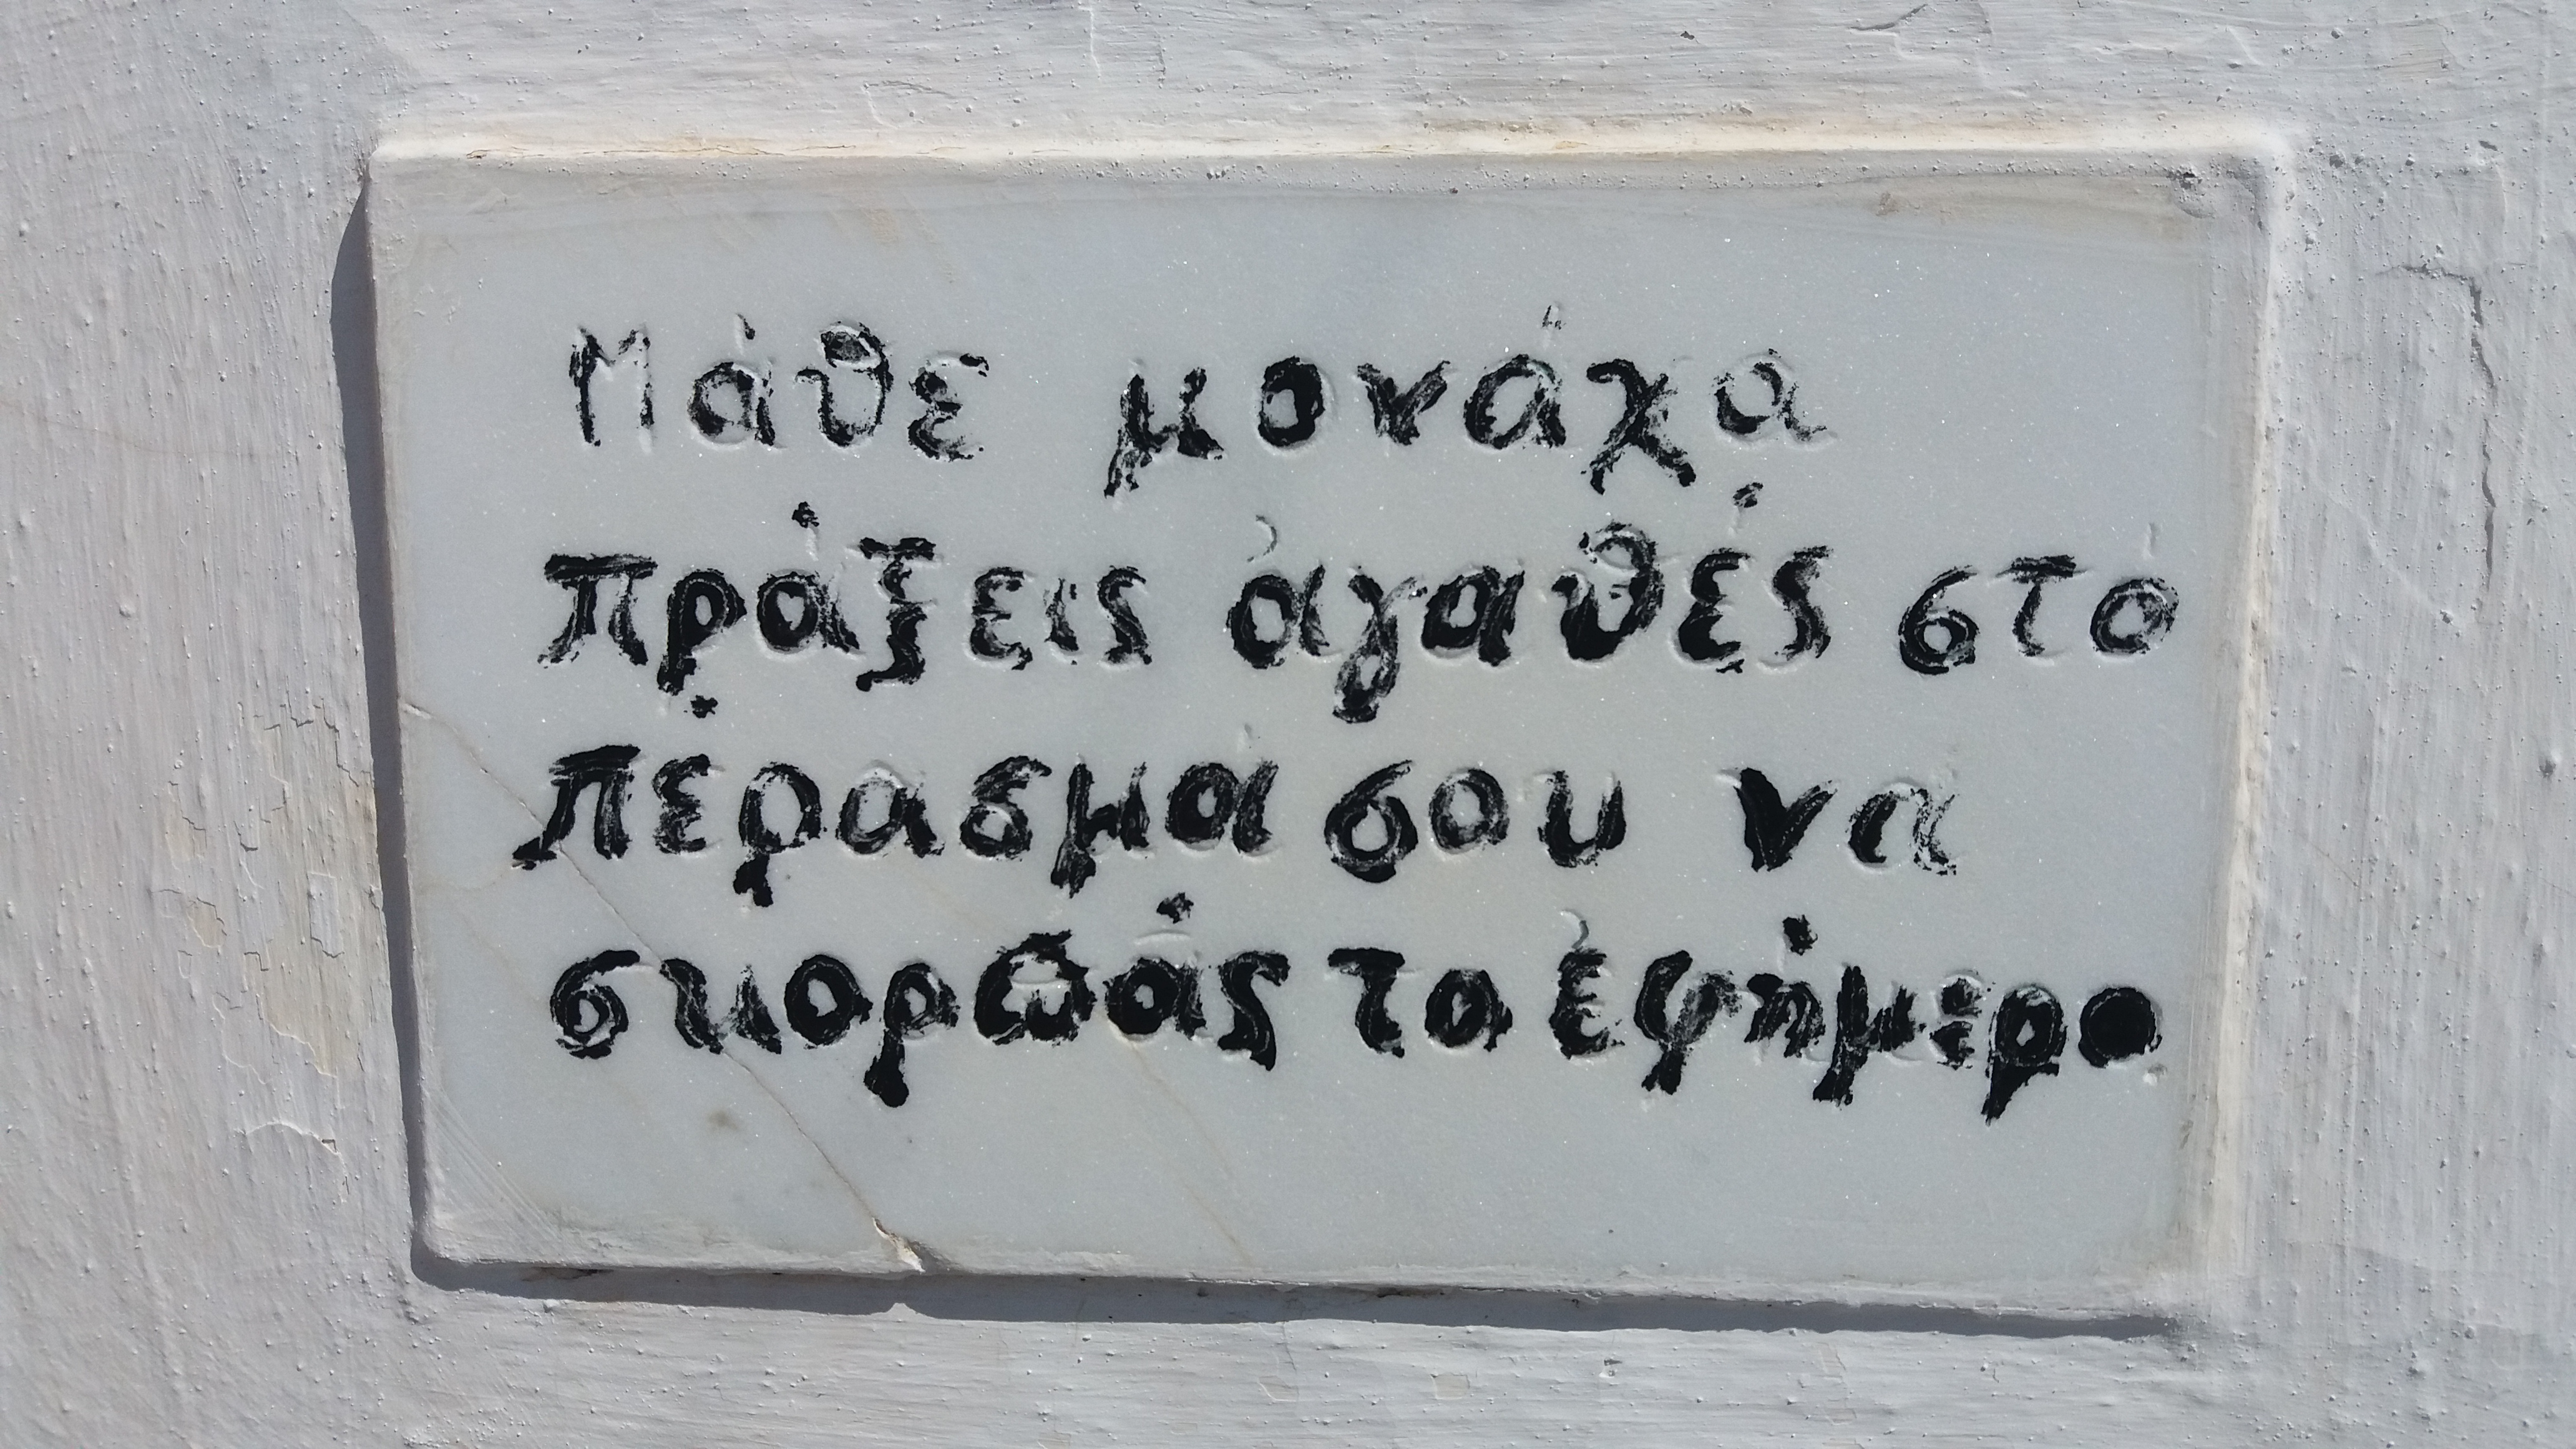 Μάθε μονάχα
πράξεις ἀγαθές στό
πέρασμά σου νά
σκορπᾶς το ἐφήμερο